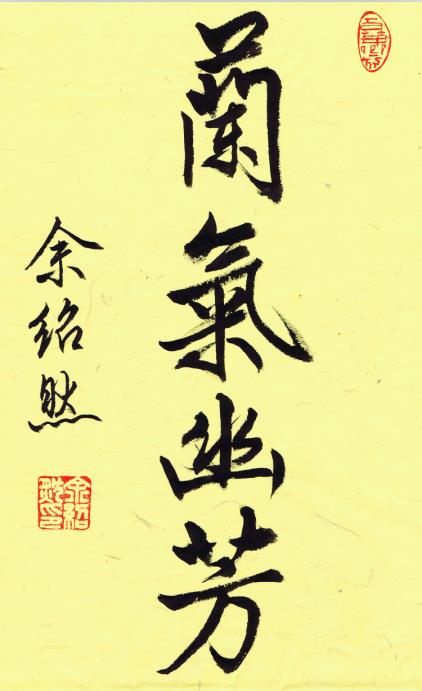 蘭氣幽芳
余紹然